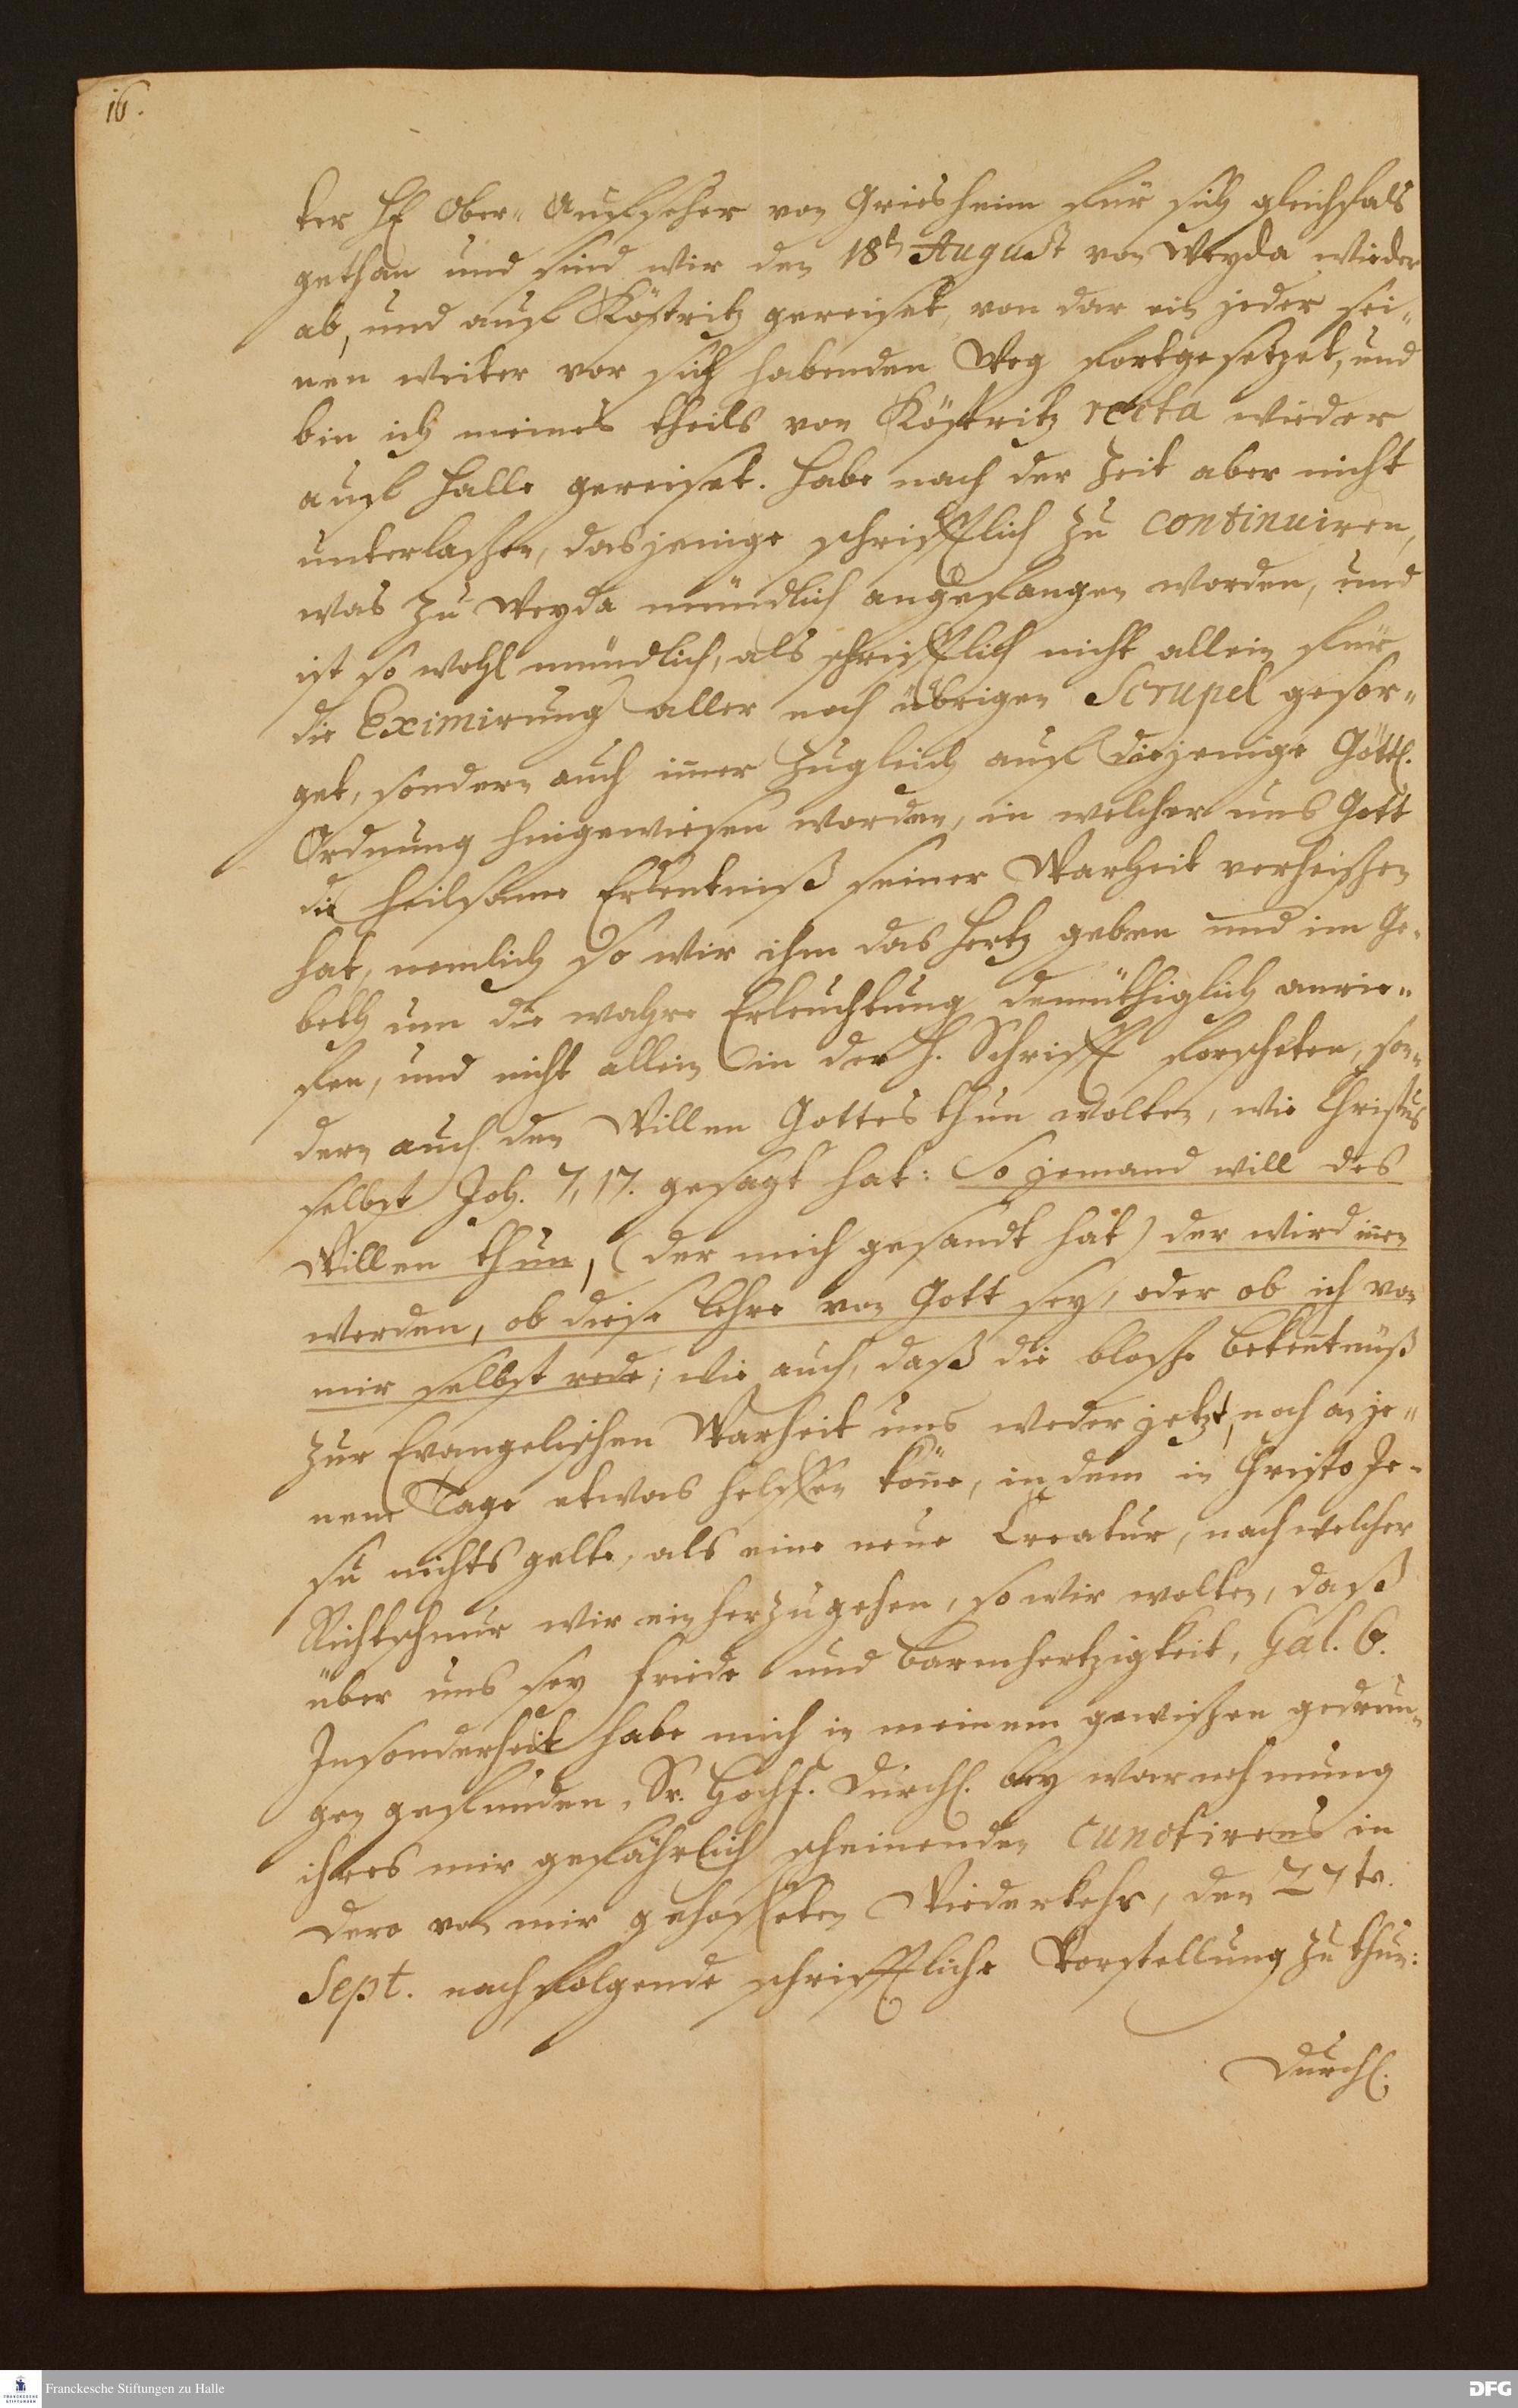 16.
ter H. Ober-Auffseher von Griesheim für sich gleichfals
gethan und sind wir den 18t August von Weyda wieder
ab, und auff Köstritz gereiset, von dar ein jeder sei-
nen weiter vor sich habenden Weg fortgesetzet, und
bin ich meines theils von Köstritz recta wieder
auff Halle gereiset. Habe nach der Zeit aber nicht
unterlassen, dasjenige schrifftlich zu continuiren,
was zu Weyda mündlich angefangen worden, und
ist so wohl mündlich, als schrifftlich nicht allein für
die Eximirung aller noch übrigen Scrupel gesor-
get, sondern auch im̄er zugleich auff diejenige Göttl.
Ordnung hingewiesen worden, in welcher uns Gott
die heilsame Erkentniß seiner Warheit verheissen
hat, nemlich so wir ihm das Hertz geben und im Ge-
beth um die wahre Erleuchtung demüthiglich anrie-
ffen, und nicht allein in der H. Schrifft forscheten, son-
dern auch den Willen Gottes thun wolten, wie Christus
selbst Joh. 7, 17. gesagt hat: So jemand will des
Willen thun, (der mich gesandt hat) der wird inen
werden, ob diese Lehre von Gott sey, oder ob ich von
mir selbst rede; wie auch, daß die blosse Bekentnüß
zur Evangelischen Warheit uns weder jetzt, noch an je-
nem Tage etwas helffen köñe, in dem in Christo Je-
su nichts gelte, als eine neue Creatur, nach welcher
Richtschnur wir einherzugehen, so wir wolten, daß
über uns sey Friede und Barmhertzigkeit, Gal. 6.
Insonderheit habe mich in meinem gewissen gedrun-
gen gefunden, Sr. Hochf. Durchl. bey warnehmung
ihres mir gefährlich scheinenden cunctirens in
Dero von mir gehoffeten Wiederkehr, den 27te.
Sept. nachfolgende schrifftliche Vorstellung zu thun:
Durchl.
Franckesche Stiftungen zu Halle
DFG